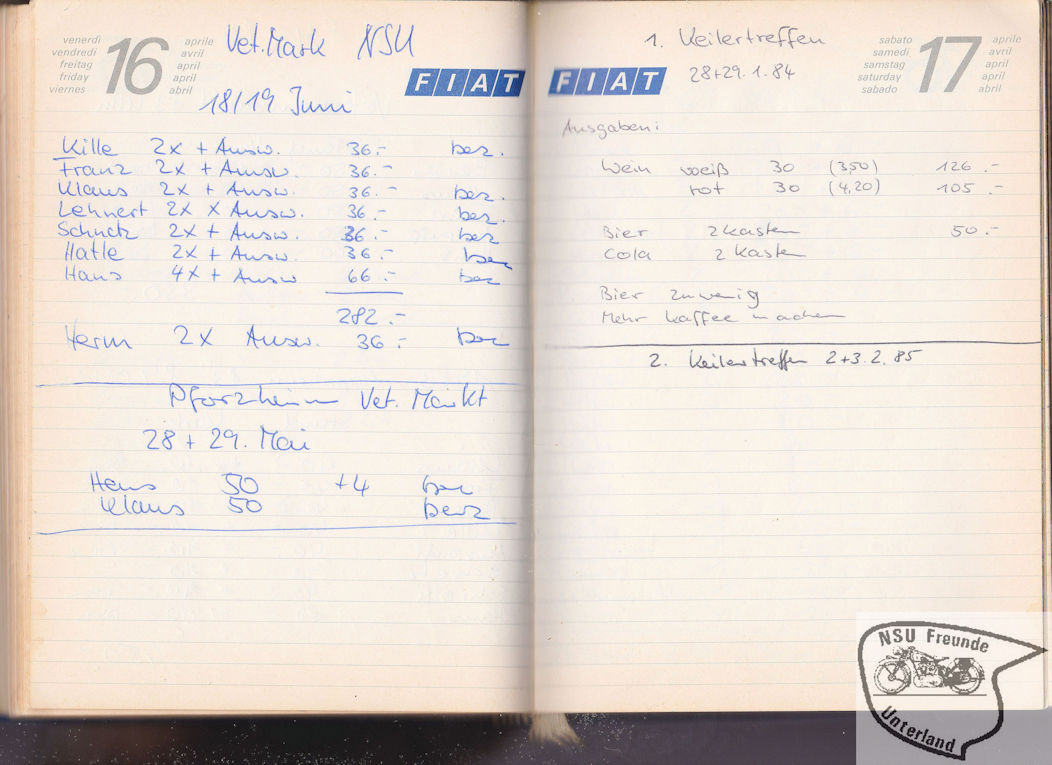 venerdì
vendredi
freitag
friday
viernes
16
aprile
avril
april
april
abril
Vet. Mark NSU
FIAT
18/19 Juni
Kille 2x + Ausw. 36.- bez.
Franz 2x + Ausw. 36.-
Klaus 2x + Ausw. 36.- bez.
Lehnert 2x x Ausw. 36.- bez.
Schnetz 2x + Ausw. 36.- bez
Hatle 2x + Ausw. 36.- bez
Hans 4x + Ausw 66.- bez
282.-
Herm 2x Ausw. 36.- bez
Pforzheim Vet. Markt
28 + 29. Mai
Hans 50 +4 bez
Klaus 50 bez
1. Keilertreffen
28+29.1.84
sabato
samedi
samstag
saturday
sabado
17
aprile
avril
april
april
abril
FIAT
Ausgaben:
Wein weiß 30 (3,50) 126.-
rot 30 (4,20) 105.-
Bier 2 Kasten 50.-
Cola 2 Kasten
Bier zu wenig
Mehr Kaffee machen
2. Keilertreffen 2+3.2.85
NSU Freunde
Unterland